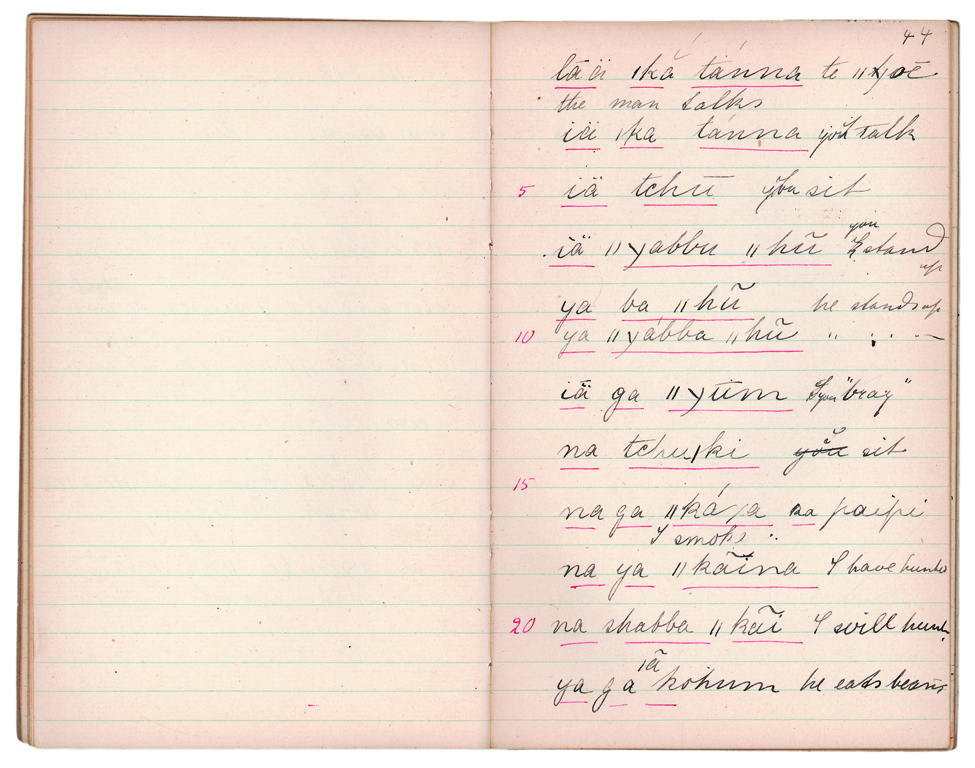 44
lāä ıkā́ tánna te ıı
the man talks
iä ıka tánna you talk
5 iä tchū you sit
iä ııɣabbu ııhũ you stand up
ya ba ııhũ he stands up
10 ya ııɣábba ııhũ " " —
iä ga ııɣūm you "bray"
na tchuıki you sit
15
na ga ııkáɣa na paipi
I smoke
na ya ııkãina I have hunted
20 na shabba ııkãi I will hunt
iã
ya ga kohum he eats beans